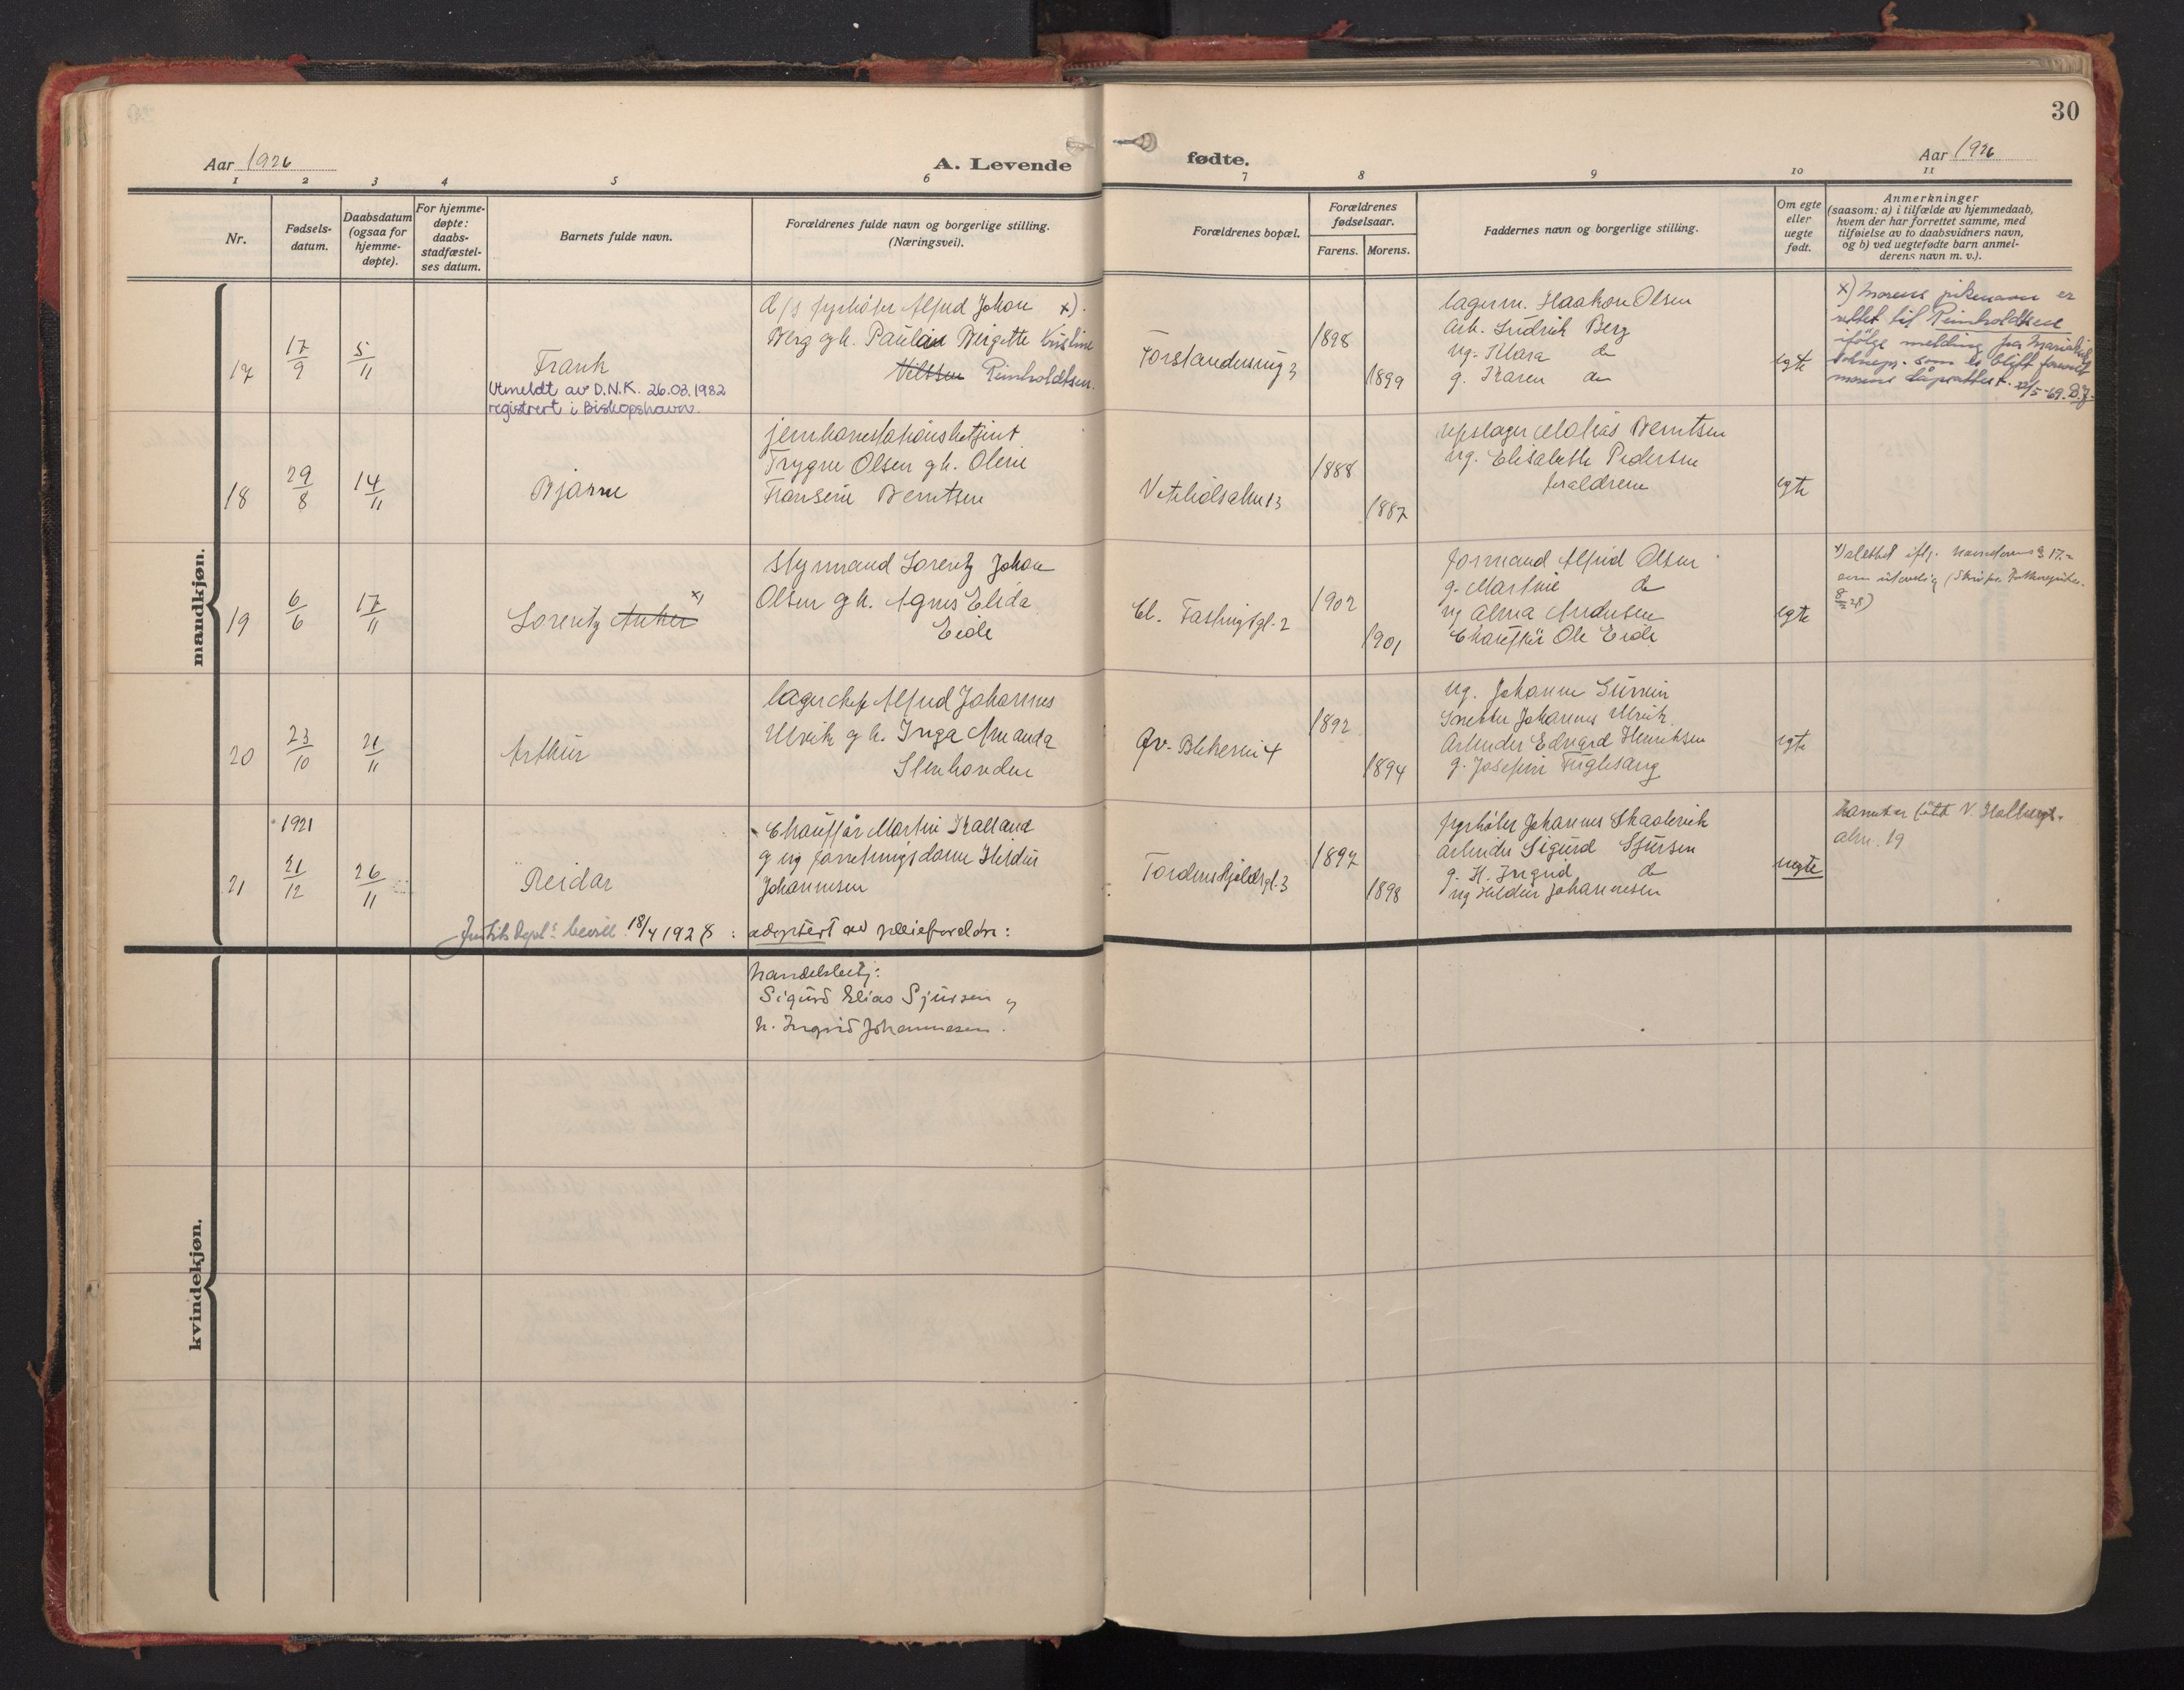 30
Aar 1926
A. Levende
fødte.
Aar 1926
1 2 3 4 5 6 7 8 9 10 11
Nr.
Fødsels-
datum.
Daabsdatum
(ogsaa for
hjemme-
døpte).
For hjemme-
døpte:
daabs-
stadfæstel-
ses datum.
Barnets fulde navn.
Forældrenes fulde navn og borgerlige stilling.
(Næringsvei).
Forældrenes bopæl.
Forældrenes
fødselsaar.
Farens. Morens.
Faddernes navn og borgerlige stilling.
Om egte
eller
uegte
født.
Anmerkninger
(saasom: a) i tilfælde av hjemmedaab,
hvem der har forrettet samme, med
tilføielse av to daabsvidners navn,
og b) ved uegtefødte barn anmel-
derens navn m. v.).
mandkjøn.
17
17/9
5/11
Frank
Utmeldt av D.N.K. 26.03.1982
registrert i Biskopshavn.
d/s fyrbøter Alfred Johan x).
Berg g h. Pauline Birgitte Kristine
Nilssen Reinholdtsen.
Forstanderssmug 3
1898
1899
lagerm. Haakon Olsen
arb. Fredrik Berg
ug. Klara do
g. Karen do
egte
x) Morens pikenavn er
rettet til Reinholdtsen
ifølge melding fra Mariakirk
soknepr. som er blitt forevist
morens dåpsattest. 22/5-69. B.J.
18
29/8
14/11
Bjarne
jernbanestationsbetjent
Trygve Olsen g h. Oline
Fransine Berntsen
Vetrlidsalm 13
1888
1887
repslager Mathias Berntsen
ug. Elisabeth Pedersen
forældrene
egte
19
6/6
17/11
Lorentz Anker x)
Styrmand Lorentz Johan
Olsen g h. Agnes Elida
Eide
Cl. Fastingsgt. 2
1902
1901
formand Alfred Olsen
g. Martine do
ug Alma Andersen
Chauffør Ole Eide
egte
x) slettet iflg. navnelovens § 17.
8/2 28)
20
23/10
21/11
Arthur
lagerchef Alfred Johannes
Ulrik g h. Inga Amanda
Stenhovden
Øv. Blekevei 4
1892
1894
ug. Johanne
Johannes Ulrik
Arbeider Edvard Henriksen
g. Josefine Fuglesang
egte
21
1921
21/12
26/11
Reidar
Chauffør Martin Kalland
og ug forretningsdame Hildur
Johannesen
Tordenskjoldsgt. 3
1897
1898
fyrbøter Johannes Skaalevik
arbeider Sigurd Sjursen
g. H. Ingrid do
ug Hildur Johannesen
uegte
barnet er født V. Holbergs-
alm. 19
Justitsdept.s bevill. 18/4 1928 : adoptert av pleieforeldre:
kvindekjøn.
handelsbetj:
Sigurd Elias Sjursen og
h. Ingrid Johannesen.